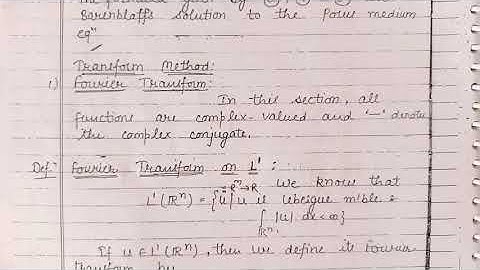 Barenblatt's solution to the Porus medium
eqⁿ
Transform Method:
i) Fourier Transform:
In this section, all
functions are complex-valued and '—' denote
the complex conjugate.
Defⁿ: Fourier Transform on L':
We know that
L'(ℝⁿ) = {u: ℝⁿ→ℝ | u is lebesgue m'ble &
∫ℝⁿ |u| dx < ∞}
If u ∈ L'(ℝⁿ), then we define its Fourier
transform by